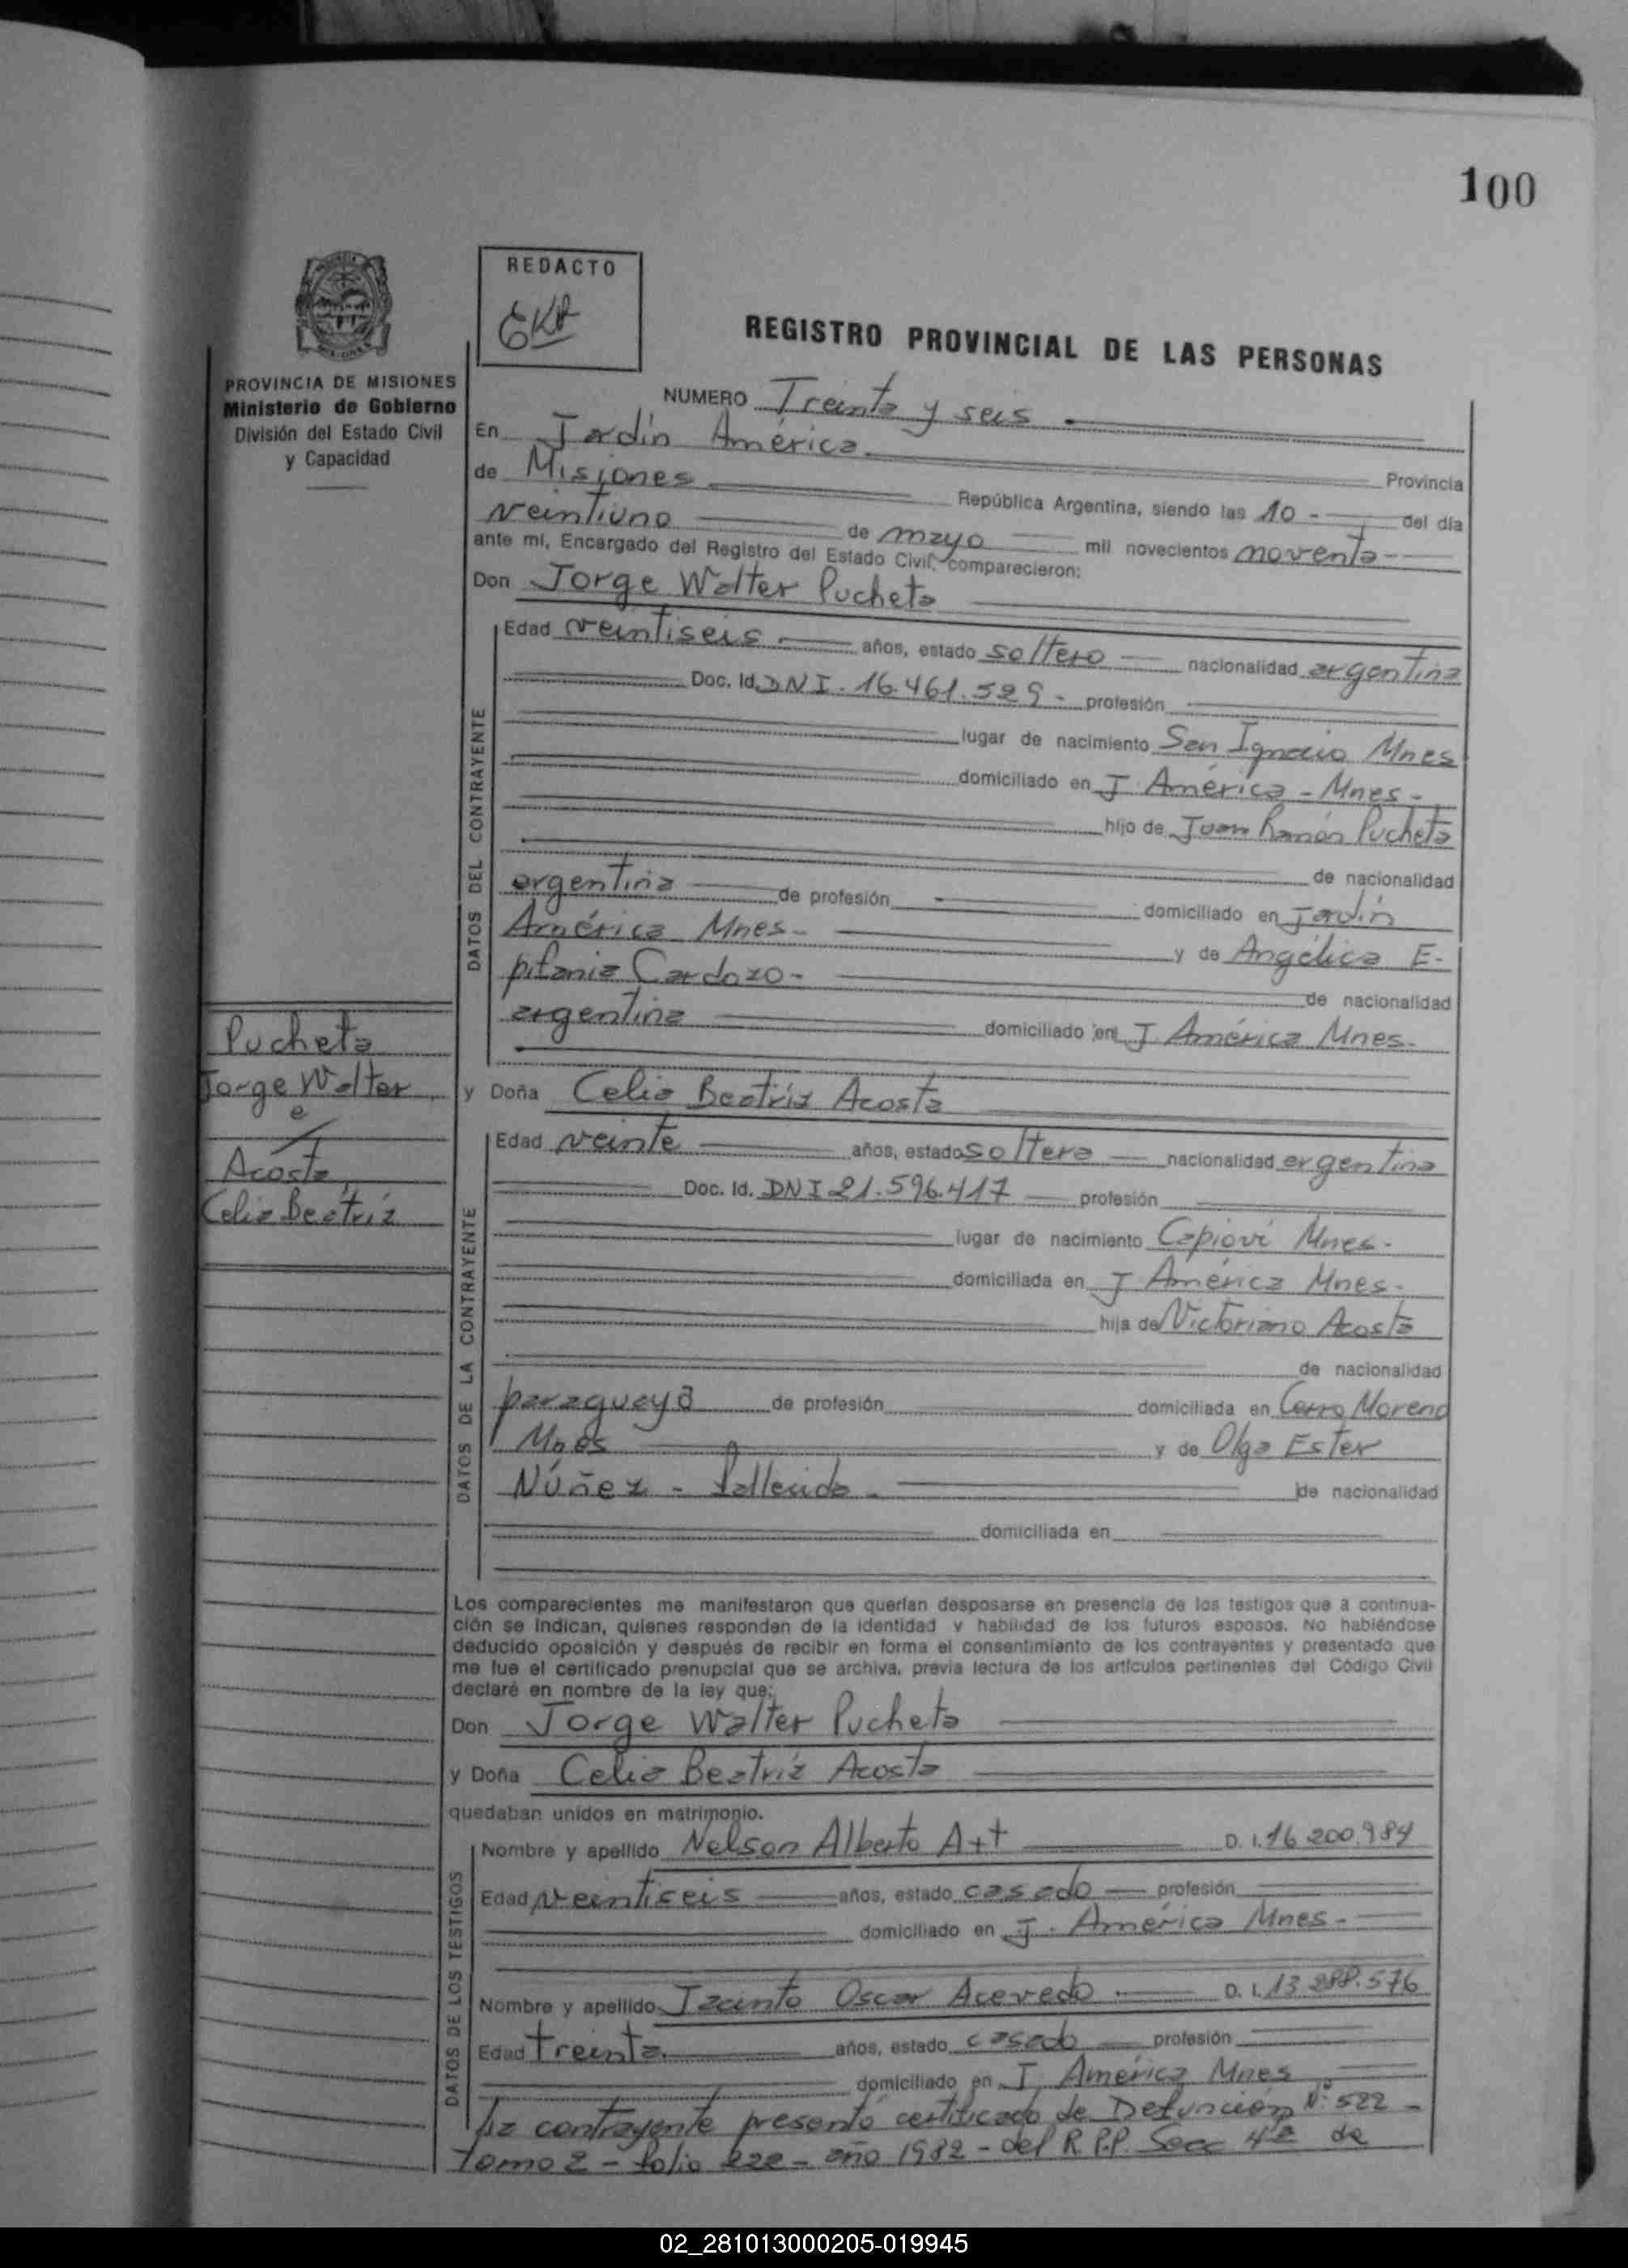 100
REDACTO
EKA
REGISTRO PROVINCIAL DE LAS PERSONAS
PROVINCIA DE MISIONES
Ministerio de Gobierno
División del Estado Civil
y Capacidad
NUMERO Treinta y seis
En Jardín América Provincia
de Misiones República Argentina, siendo las 10 - del día
veintiuno de mayo mil novecientos noventa
ante mí, Encargado del Registro del Estado Civil, comparecieron:
Don Jorge Walter Pucheta
DATOS DEL CONTRAYENTE
Edad veintiseis años, estado soltero nacionalidad argentina
Doc. Id. DNI. 16.461.529 - profesión
lugar de nacimiento San Ignacio Mnes
domiciliado en J. América - Mnes -
hijo de Juan Ramón Pucheta
de nacionalidad
argentina de profesión domiciliado en Jardín
América Mnes - y de Angélica E-
pifania Cardozo - de nacionalidad
argentina domiciliado en J. América Mnes.
Pucheta
Jorge Walter
e
Acosta
Celia Beatríz
y Doña Celia Beatríz Acosta
DATOS DE LA CONTRAYENTE
Edad veinte años, estado soltera nacionalidad argentina
Doc. Id. DNI 21.596.417 profesión
lugar de nacimiento Capioví Mnes -
domiciliada en J América Mnes -
hija de Victoriano Acosta
de nacionalidad
paraguaya de profesión domiciliada en Cerro Moreno
Mnes y de Olga Ester
Núñez - fallecida - de nacionalidad
domiciliada en
Los comparecientes me manifestaron que querían desposarse en presencia de los testigos que a continua-
ción se indican, quienes responden de la identidad y habilidad de los futuros esposos. No habiéndose
deducido oposición y después de recibir en forma el consentimiento de los contrayentes y presentado que
me fue el certificado prenupcial que se archiva, previa lectura de los artículos pertinentes del Código Civil
declaré en nombre de la ley que:
Don Jorge Walter Pucheta
y Doña Celia Beatríz Acosta
quedaban unidos en matrimonio.
DATOS DE LOS TESTIGOS
Nombre y apellido Nelson Alberto Att D. I. 16 200.984
Edad veintiseis años, estado casado profesión
domiciliado en J. América Mnes -
Nombre y apellido Jacinto Oscar Acevedo D. I. 13 288.576
Edad treinta años, estado casado profesión
domiciliado en J. América Mnes
La contrayente presentó certificado de Defunción Nº 522 -
Tomo 2 - folio 222 - año 1982 - del R.P.P. Secc 4ª de
02_281013000205-019945